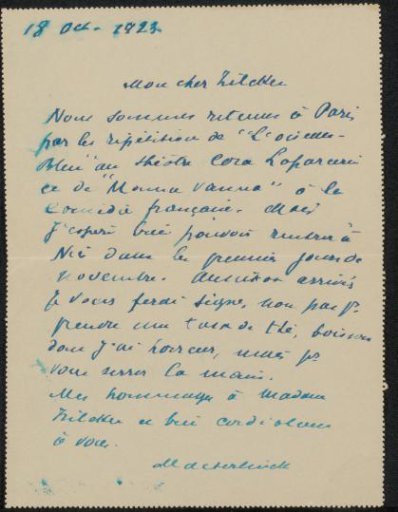 18 Oct. 1923
Mon cher Zilcken
Nous sommes retenus à Paris
par les répétitions de "L'oiseau-
Bleu" au théâtre Cora Laparcerie
et de "Monna Vanna" à la
Comédie française. Mais
J'espère bien pouvoir rentrer à
Nice dans les premiers jours de
novembre. Aussitôt arrivés
Je vous ferai signe, non pas pr
prendre une tasse de thé, boisson
dont j'ai horreur, mais pr
vous serrer la main.
Mes hommages à Madame
Zilcken et bien cordialement
à vous.
Maeterlinck